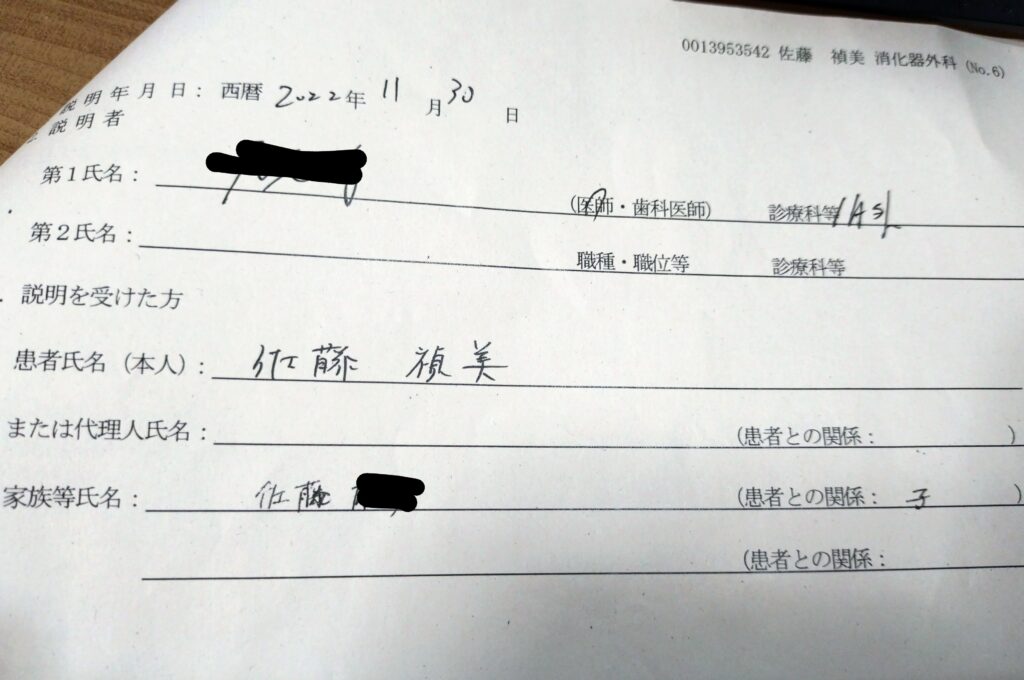 0013953542 佐藤　禎美 消化器外科 (No.6)
説明年月日：西暦 2022年 11月30日
説明者
第１氏名：　（医師・歯科医師）　診療科等
第２氏名：　職種・職位等　診療科等
．説明を受けた方
患者氏名（本人）：佐藤　禎美
または代理人氏名：　（患者との関係：　）
家族等氏名：佐藤　（患者との関係：子　）
（患者との関係：